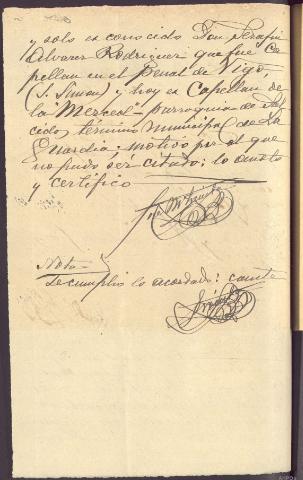 y solo es conocido Don Serafin
Alvarez Rodriguez que fué Ca-
pellan en el Penal de Vigo,
(S. Simon) y hoy es Capellan de
la "Merced" parroquia de Sal-
cidos, término Municipal de La
Guardia: motivo por el que
no pudo ser citado: lo anoto
y certifico
Nota
Se cumplió lo acordado: cuento